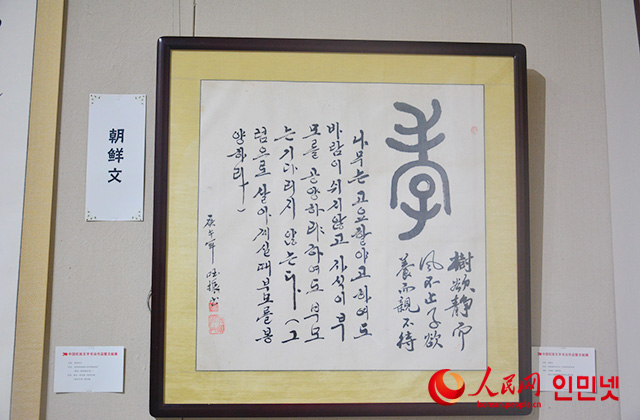 朝鲜文
孝
樹欲靜而
風不止子欲
養而親不待
나무는 고요할야고 하여도
바람이 쉬지않고 자식이 부
모를 공양하랴 하여도 부모
는 기다리지 않는다 (그
럼으로 살아계실때 부모를 봉
양하라)
庚午年
人民网 인민넷